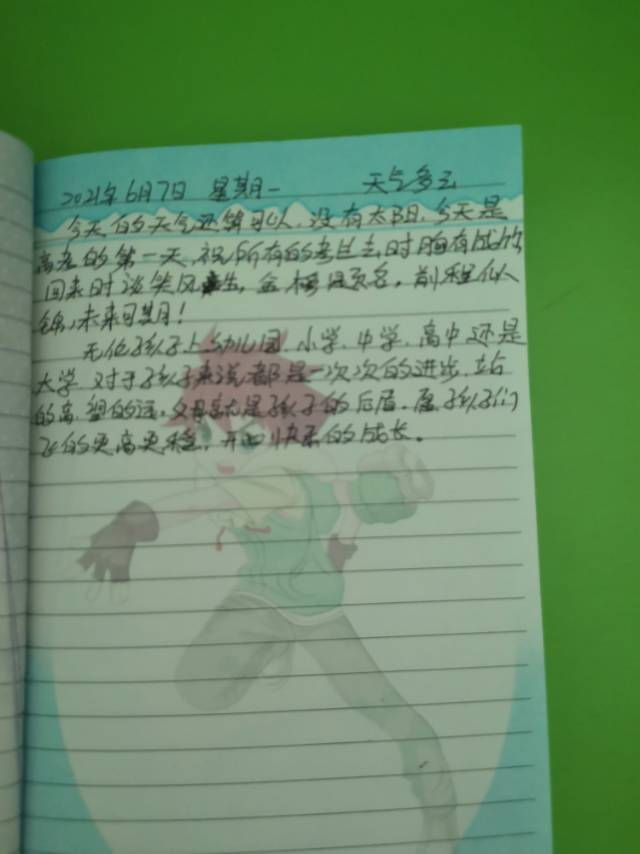 2021年6月7日 星期一 天气多云
今天的天气还算可以,没有太阳,今天是
高考的第一天,祝所有的考过去时胸有成竹
回来时谈笑风生,金榜题名,前程似
锦,未来可期!
无论孩子上幼儿园、小学、中学、高中还是
大学 对于孩子来说都是一次次的进步,站
的高,望的远,父母就是孩子的后盾,愿孩子们
飞的更高更稳,开心快乐的成长。